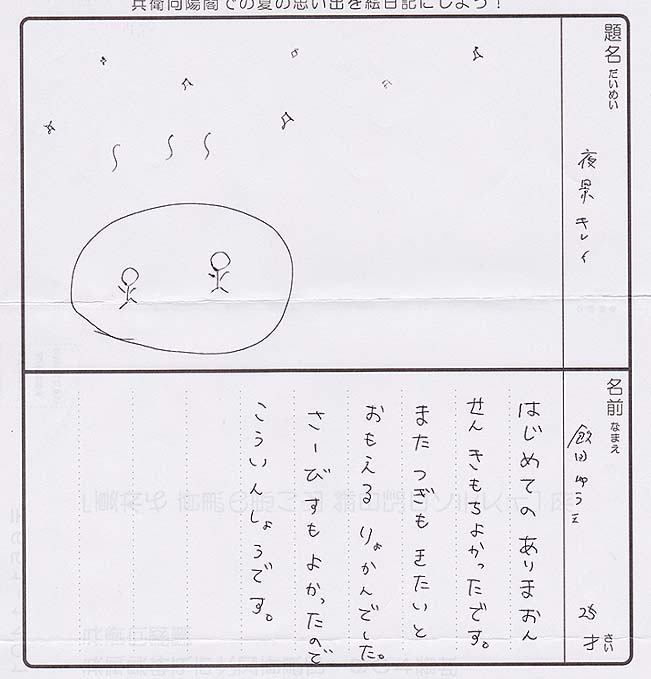 兵衛向陽閣での夏の思い出を絵日記にしよう！
題名 だいめい
夜景キレイ
名前 なまえ
飯田
才 さい
はじめてのありまおん
せんきもちよかったです。
またつぎもきたいと
おもえるりょかんでした。
さーびすもよかったので
こういんしょうです。